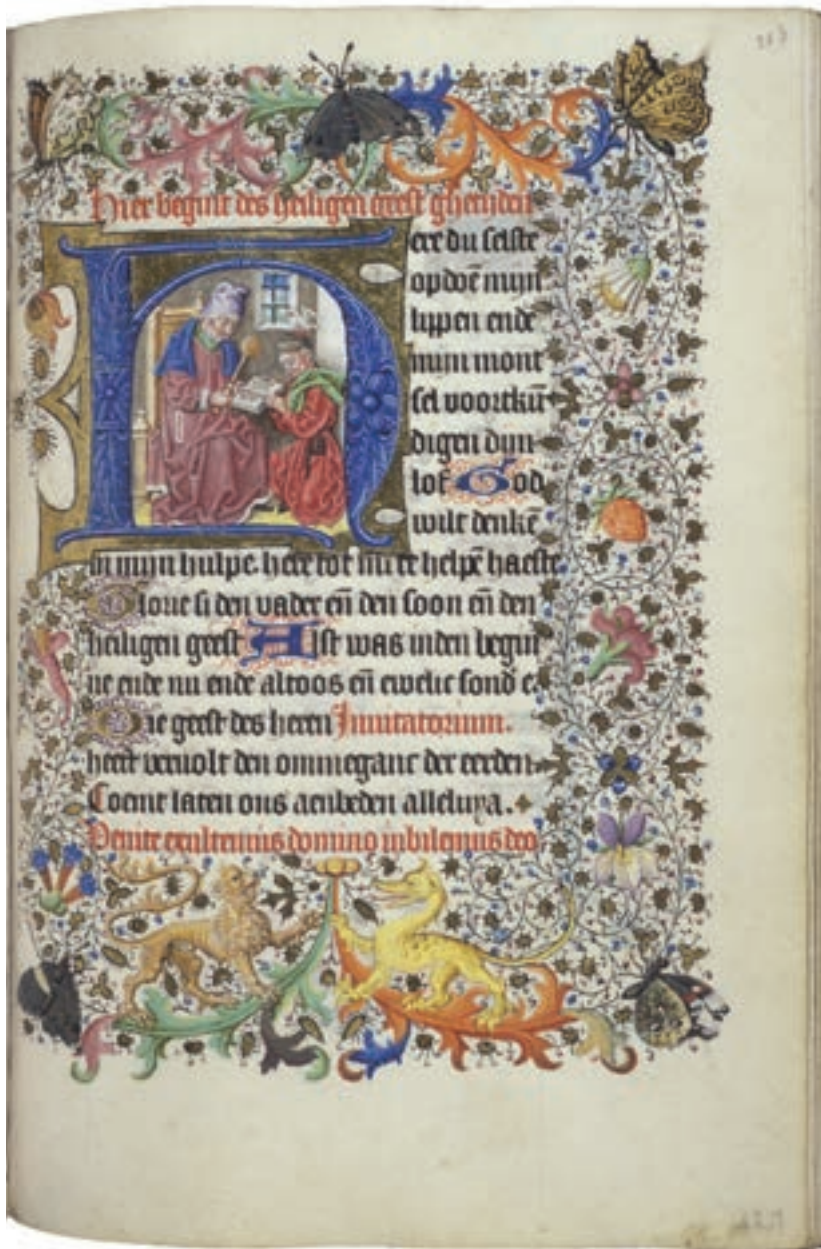 Hier begint des heiligen geest ghetijden
Here du selste
opdoē mijn
lippen ende
mijn mont
sel voortkū
digen dijn
lof God
wilt denkē
in mijn hulpe. here tot mi te helpē haeste.
Glorie si den vader eñ den soon eñ den
heiligen geest Alst was inden begin
ne ende nu ende altoos eñ ewelic sond e.
Die geest des heren Invitatorium.
heeft vervolt den ommeganc der eerden
Coemt laten ons aenbeden alleluya.
Venite exultemus domino iubilemus deo